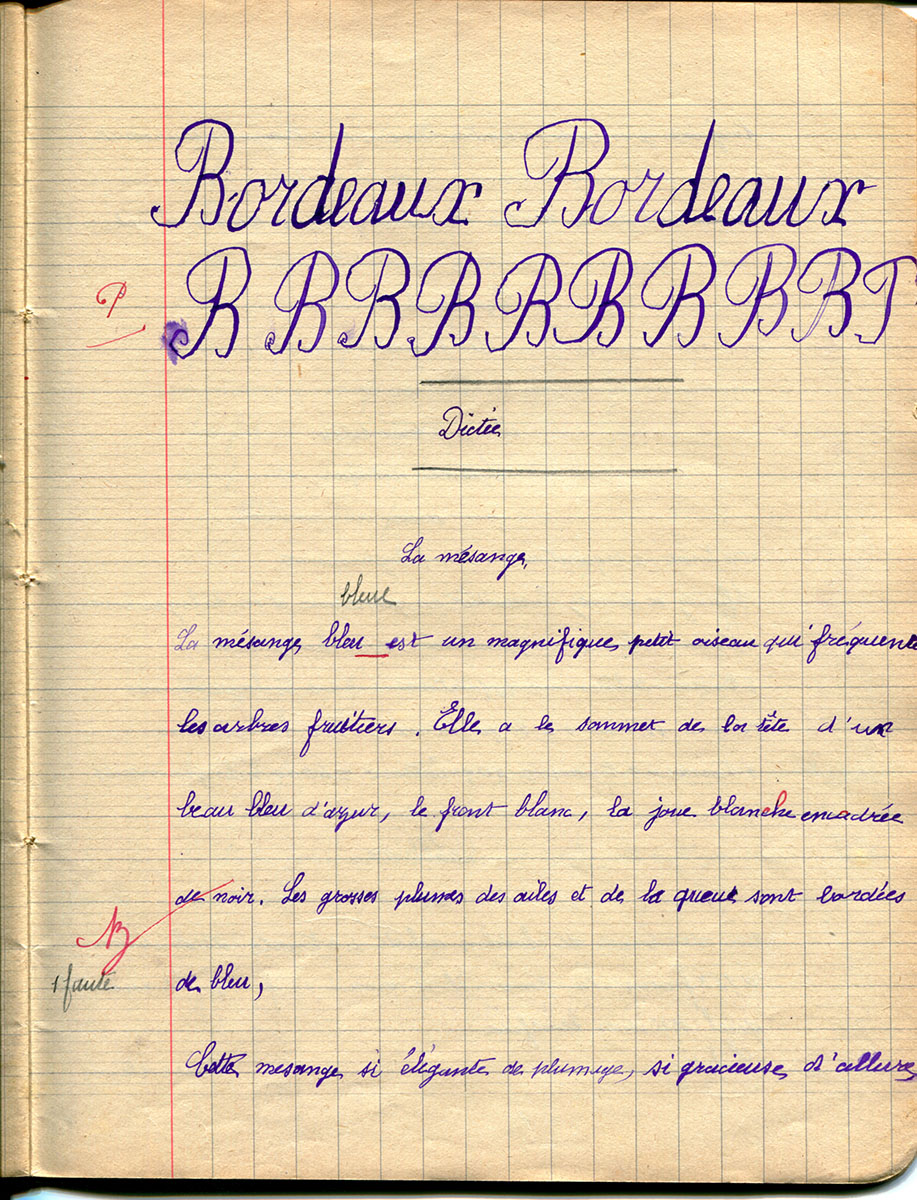 Bordeaux Bordeaux
P
B B B B B B B B B
Dictée
La mésange
bleue
La mésange bleu est un magnifique petit oiseau qui fréquente
les arbres fruitiers. Elle a le sommet de la tête d'un
beau bleu d'azur, le front blanc, la joue blanche encadrée
de noir. Les grosses plumes des ailes et de la queue sont bordées
B
1 faute
de bleu,
Cette mesange si élégante de plumage, si gracieuse d'allure